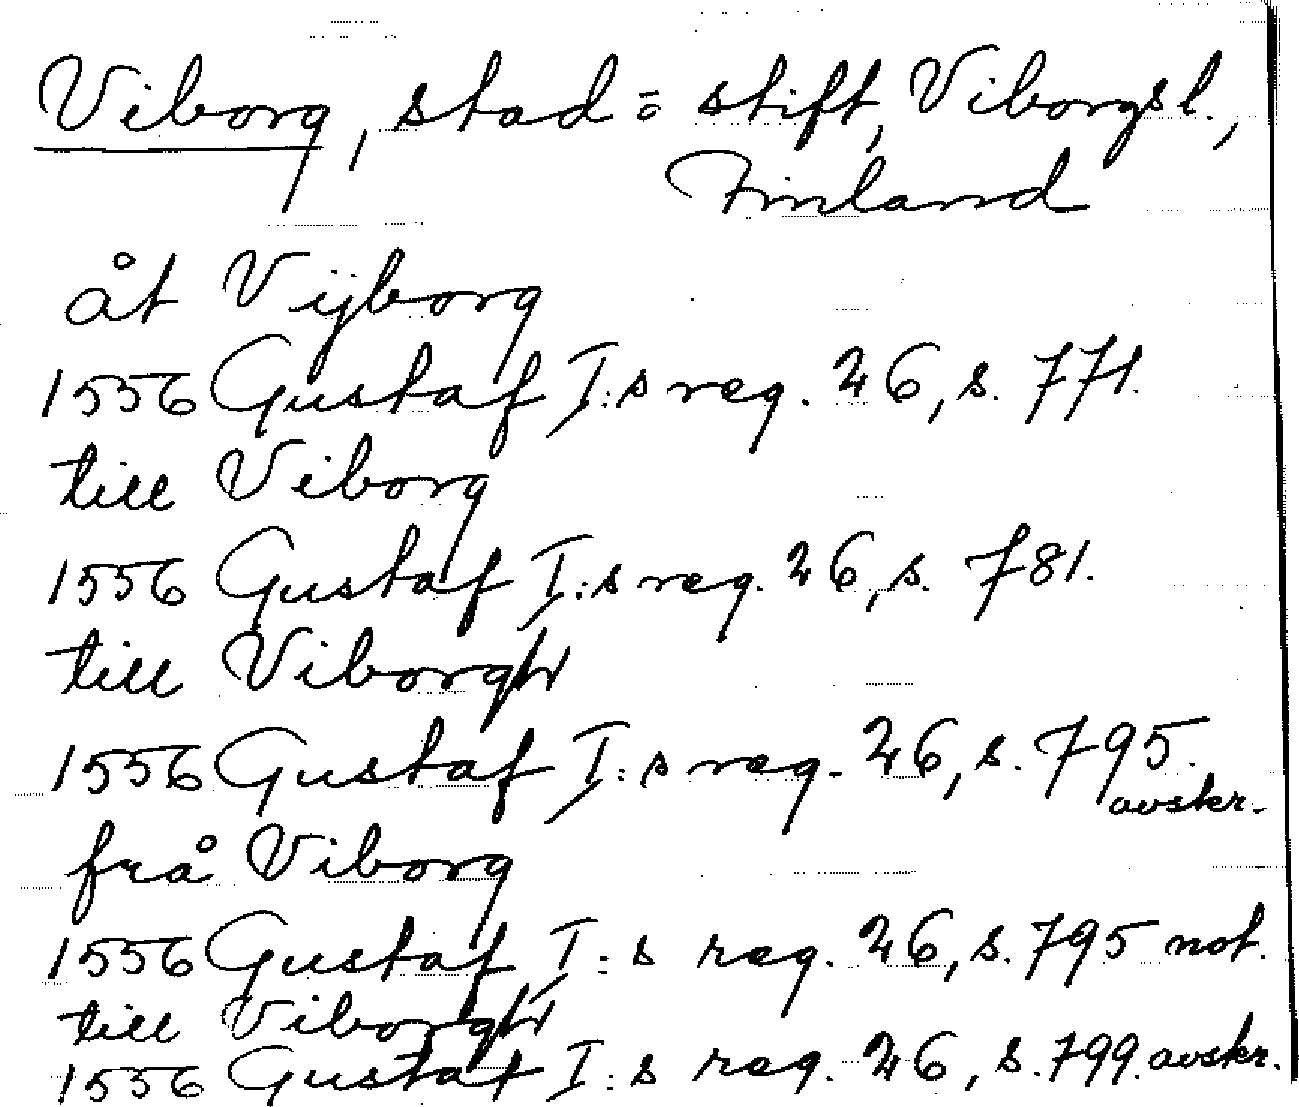 Viborg, stad o stift, Viborgs l.,
Finland
åt Vijborg
1556 Gustaf I:s reg. 26, s. 771.
till Viborg
1556 Gustaf I:s reg. 26, s. 781.
till Viborgh
1556 Gustaf I:s reg. 26, s. 795.
avskr.
frå Viborg
1556 Gustaf I:s reg. 26, s. 795 not.
till Viborgh
1556 Gustaf I:s reg. 26, s. 799. avskr.